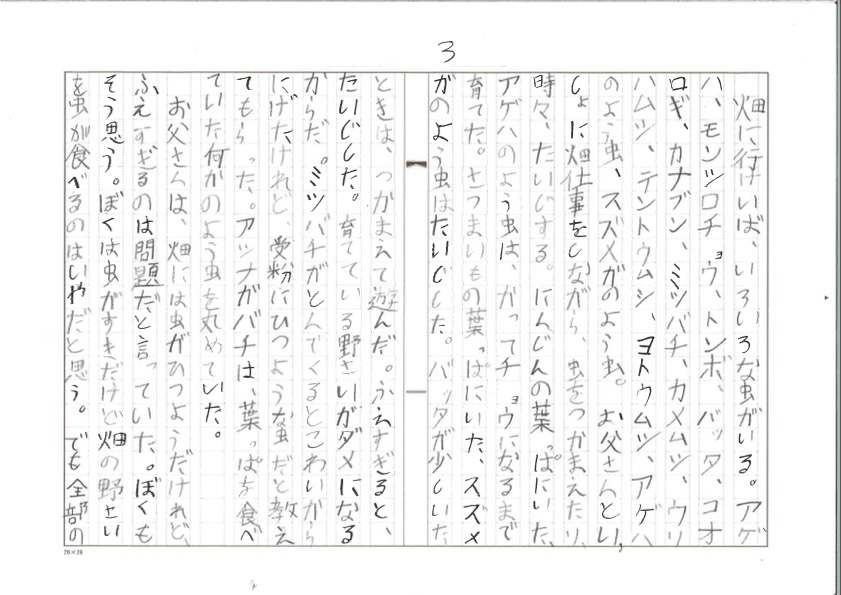 3
畑に行けいば、いろいろな虫がいる。アゲ
ハ、モンシロチョウ、トンボ、バッタ、コオ
ロギ、カナブン、ミツバチ、カメムシ、ウリ
ハムシ、テントウムシ、ヨトウムシ、アゲハ
のよう虫、スズメガのよう虫。お父さんとい
しょに畑仕事をしながら、虫をつかまえたり、
時々、たいじする。にんじんの葉っぱにいた、
アゲハのよう虫は、かってチョウになるまで
育てた。さつまいもの葉っぱにいた、スズメ
ガのよう虫はたいじした。バッタが少しいた
ときは、つかまえて遊んだ。ふえすぎると、
たいじした。育てている野さいがダメになる
からだ。ミツバチがとんでくるとこわいから
にげたけれど、受粉にひつような虫だと教え
てもらった。アシナガバチは、葉っぱを食べ
ていた何かのよう虫を丸めていた。
お父さんは、畑には虫がひつようだけれど、
ふえすぎるのは問題だと言っていた。ぼくも
そう思う。ぼくは虫がすきだけど畑の野さい
を虫が食べるのはいやだと思う。でも全部の
20×20